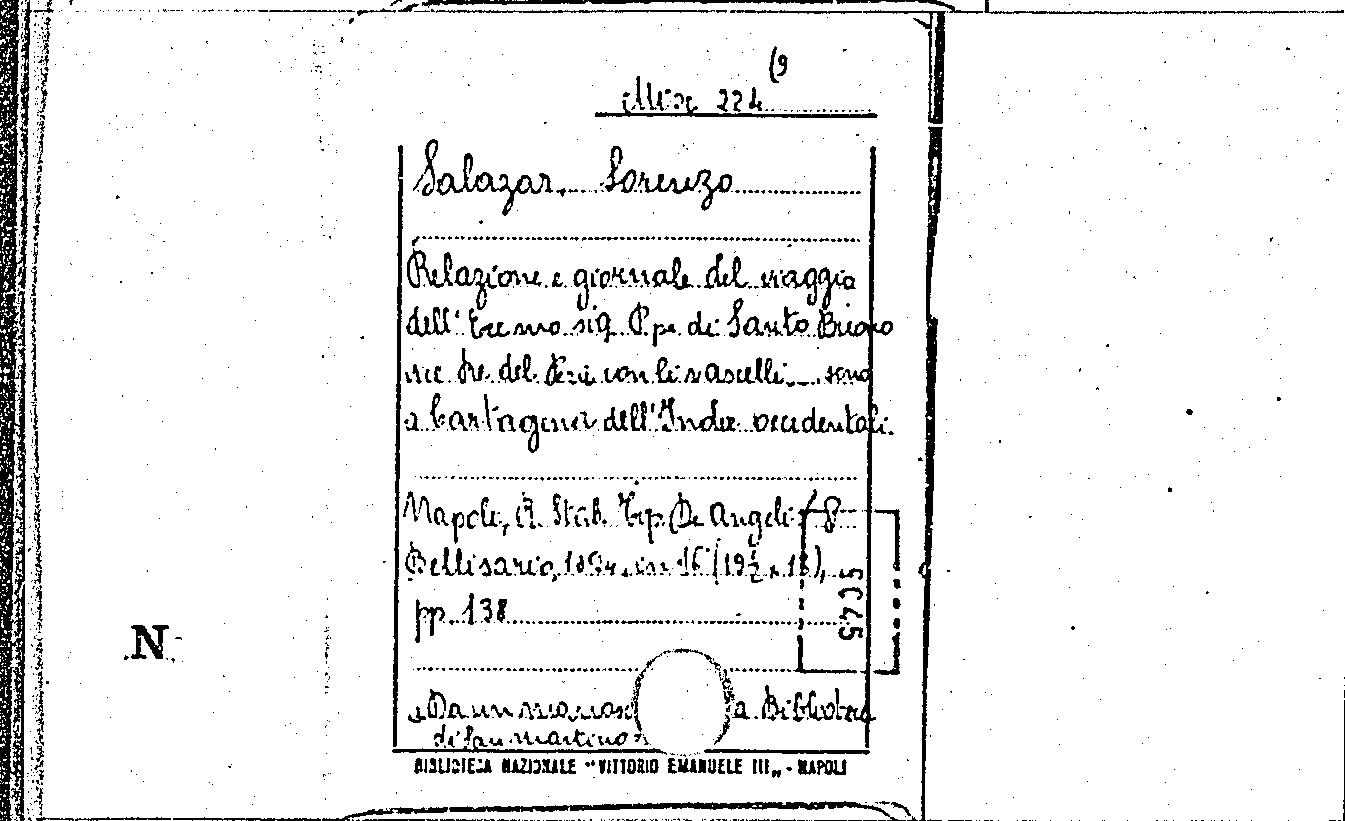 (9
Misc 224
Salazar, Lorenzo
Relazione e giornale del viaggio
dell' Ecc mo sig. Ppe di Santo Buono
vice Re del Perù con li vascelli sino
a Cartagena dell' Indie occidentali.
Napoli, R. Stab. Tip. De Angeli
Bellisario, in 16
pp. 138
5045
N
Da un manos a Biblioteca
di San Martino
BIBLIOTECA NAZIONALE "VITTORIO EMANUELE III„ - NAPOLI